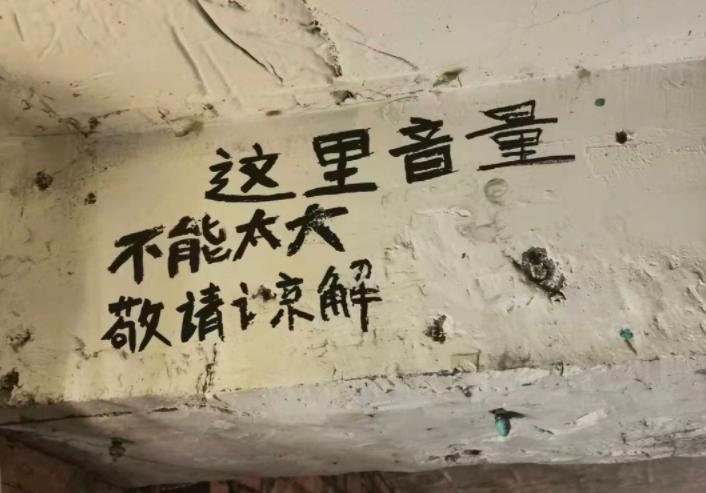 这里音量
不能太大
敬请谅解